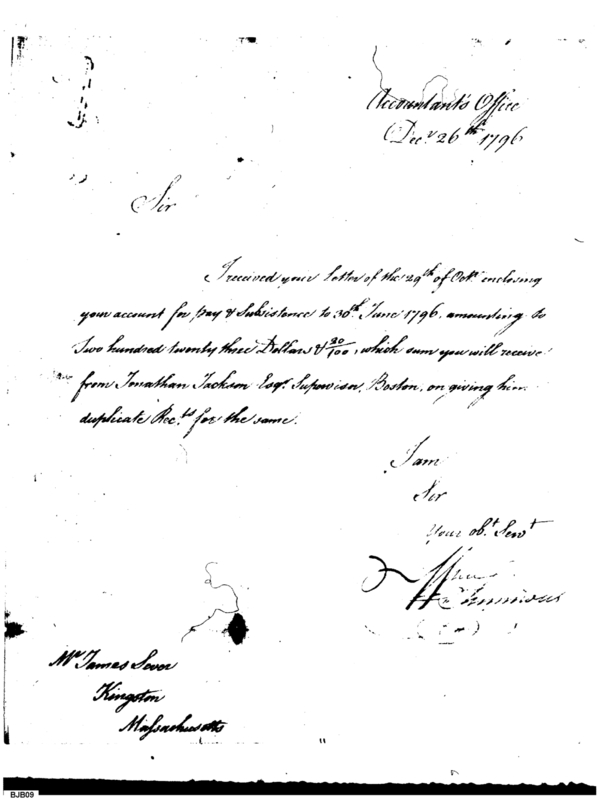 Accountant's Office
Decr. 26th 1796
Sir
I received your Letter of the 29th of Octr. enclosing
your account for pay & Subsistence to 30th. June 1796. amounting to
Two hundred twenty three Dollars & 20/100, which sum you will receive
from Jonathan Jackson Esqr. Supervisor, Boston, on giving him
duplicate Rec.ts for the same.
I am
Sir
Your obt. Servt
Simmons
Mr. James Sever
Kingston
Massachusetts
BJB09